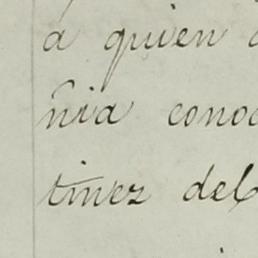 a quien
ñia cono
tinez del